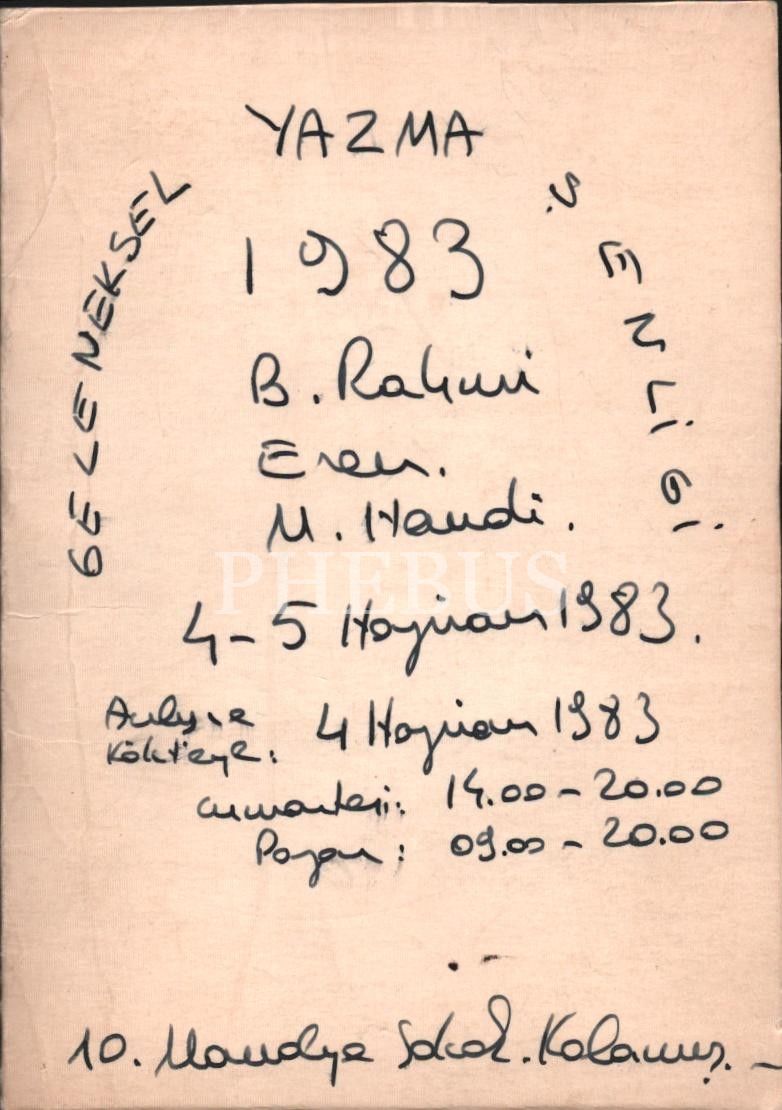 GELENEKSEL
YAZMA
ŞENLİĞİ
1983
B. Rahmi
Eren.
M. Hamdi.
PHEBUS
4-5 Haziran 1983.
Açılış ve
Kokteyl: 4 Haziran 1983
Cumartesi: 14.00 - 20.00
Pazar: 09.00 - 20.00
10. Mandıra Sokak. Kalamış.